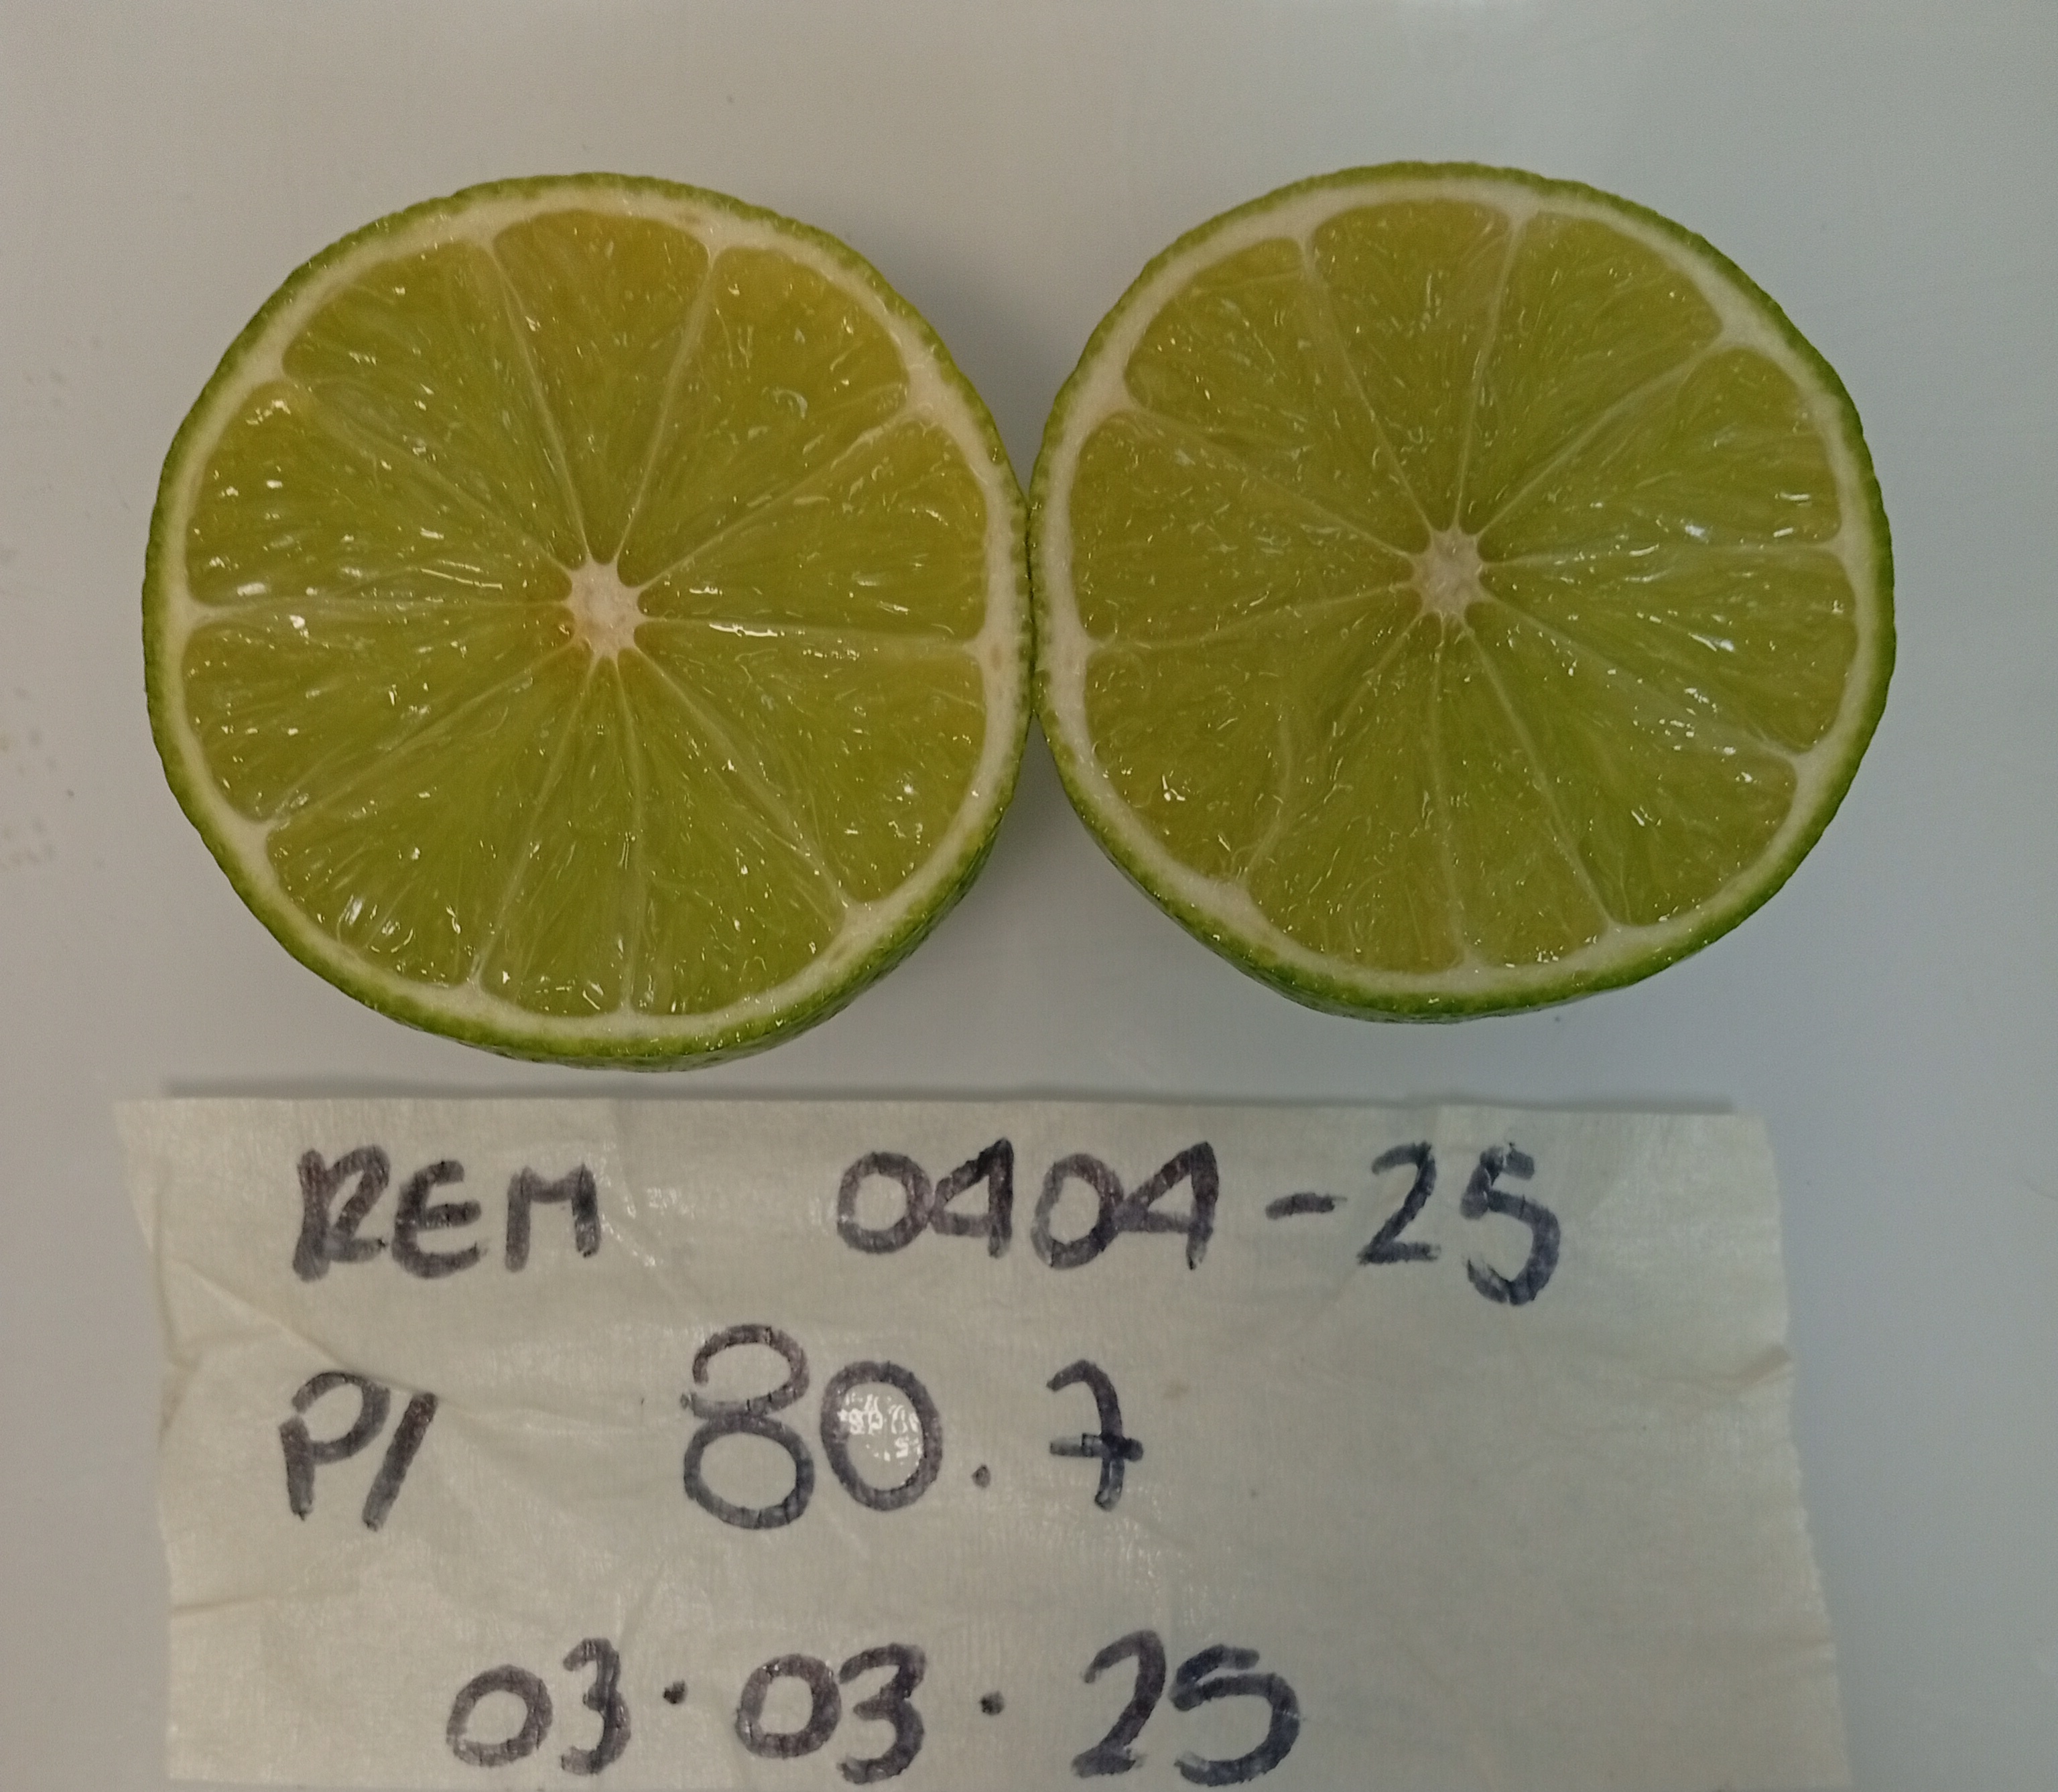 REM 0404-25
P1 80.7
03.03.25